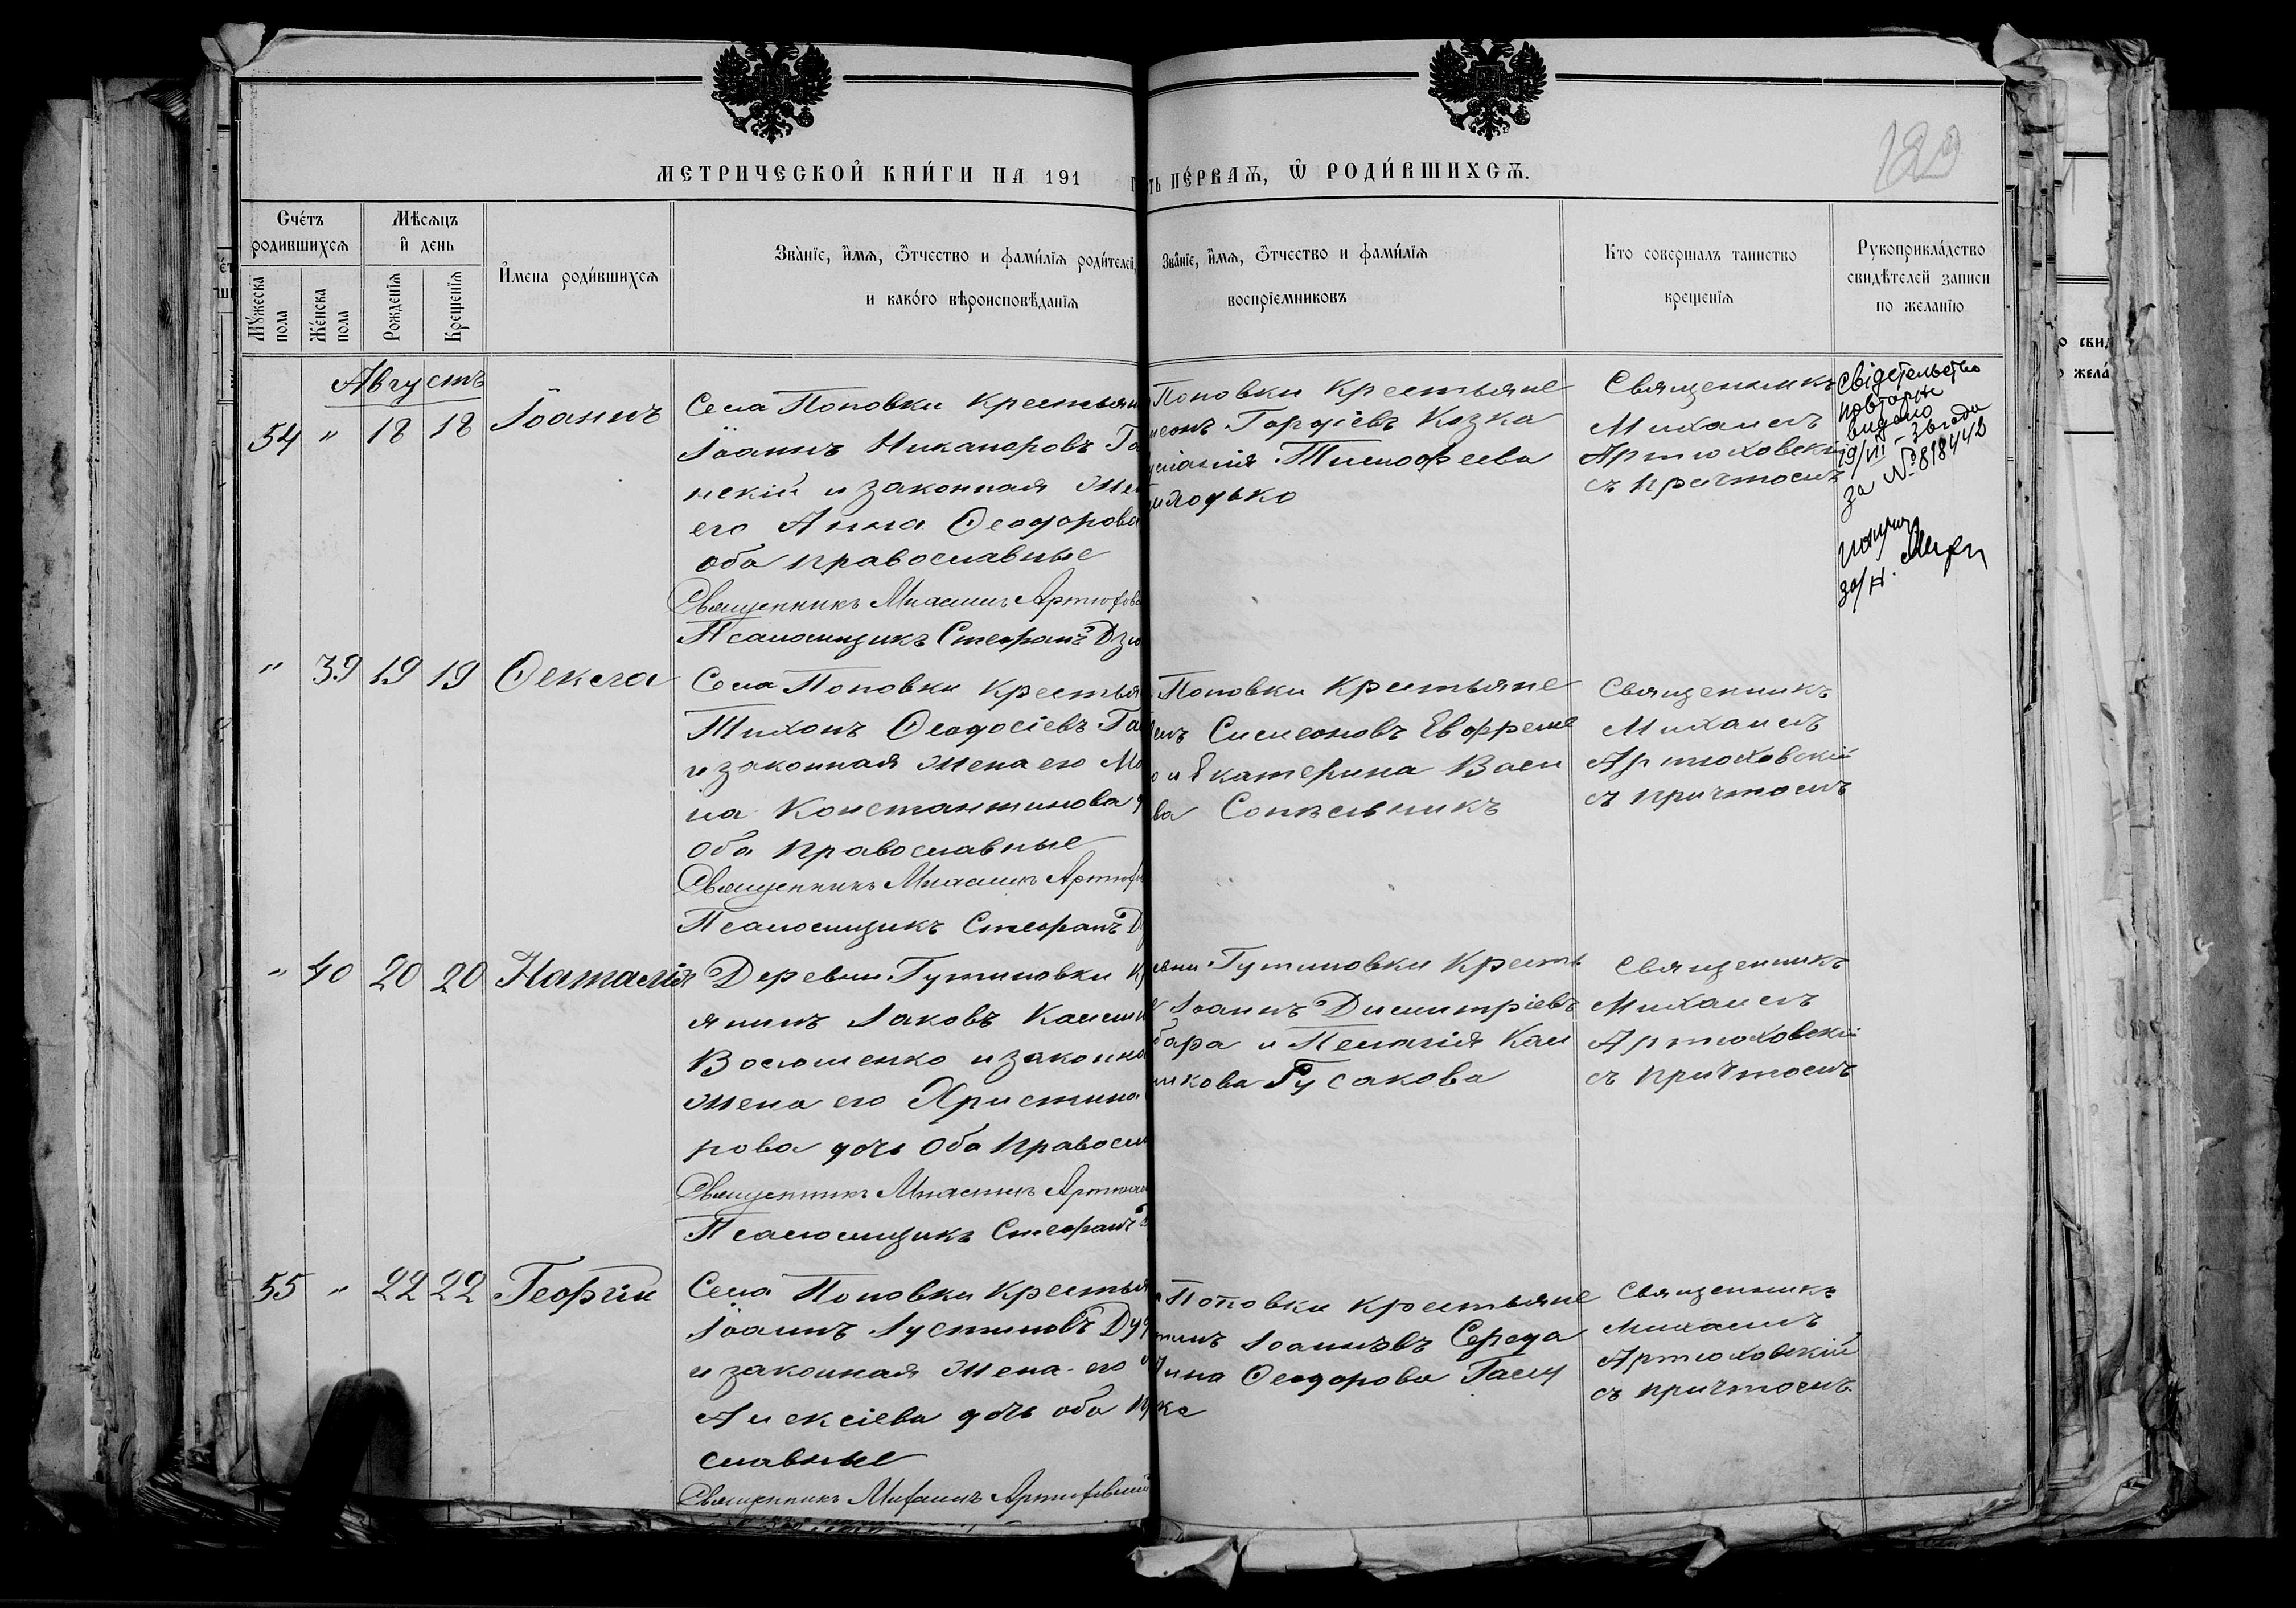 МЕТРИЧЕСКОЙ КНИ́ГИ НА 191
ть пе́рваѧ, ѿ роди́вшихсѧ.
Сче́тъ родившихсѧ
Мѣсѧцъ и҆ день
И҆мена роди́вшихсѧ
Зва́нїе, и҆́мѧ, ѻ҆́тчество и фами́лїѧ роди́телей,
и како́го вѣроисповѣ́данїѧ
Зва́нїе, и҆́мѧ, ѻ҆́тчество и фами́лїѧ
воспрїемниковъ
Кто совершалъ таинство
крещенїѧ
Рукоприкла́дство
свидѣтелей записи
по желанїю
Мꙋжеска пола
Же́нска пола
Рожденїѧ
Крещенїѧ
Августъ
54 " 18 18 Іоаннъ
Села Поповки крестьян
Іоаннъ Никаноровъ Га
нскій и законная жен
его Анна Ѳеодорова
оба православные
Священникъ Михаилъ Артюхов
Псаломщикъ Стефанъ Дзю
Поповки крестьяне
меонъ Гордіевъ Козка
Тимофеева
Священникъ
Михаилъ
Артюховскій
съ причтомъ
Свідетельство
повторне
видано
19/VII – 36 года
за № 818442
" 39 19 19 Ѳекла
Села Поповки крестья
Тихонъ Ѳеодосіевъ Га
и законная жена его Ма
на Константинова д
оба православные
Священникъ Михаилъ Артюх
Псаломщикъ Стефанъ Д
Поповки крестьяне
Симеоновъ Евфреме
о и Екатерина Васи
ва Сопельникъ
Священникъ
Михаилъ
Артюховскій
съ причтомъ
" 40 20 20 Наталія
Деревни Гутниовки кр
янинъ Іаковъ
и законна
жена его Христина
рова дочь оба правосл
Священникъ Михаилъ Артюхов
Псаломщикъ Стефанъ
евни Гутниовки кресть
Іоаннъ Димитріевъ
бара и Пелагія Кал
никова Гусакова
Священникъ
Михаилъ
Артюховскій
съ причтомъ
55 " 22 22 Георгій
Села Поповки крестья
Іоаннъ Іустиновъ Ду
и законная жена его
Алексіева дочь оба пр
славные
Священникъ Михаилъ Артюховскій
Поповки крестьяне
Іоанновъ Середа
Ѳеодорова Галу
ка
Священникъ
Михаилъ
Артюховскій
съ причтомъ